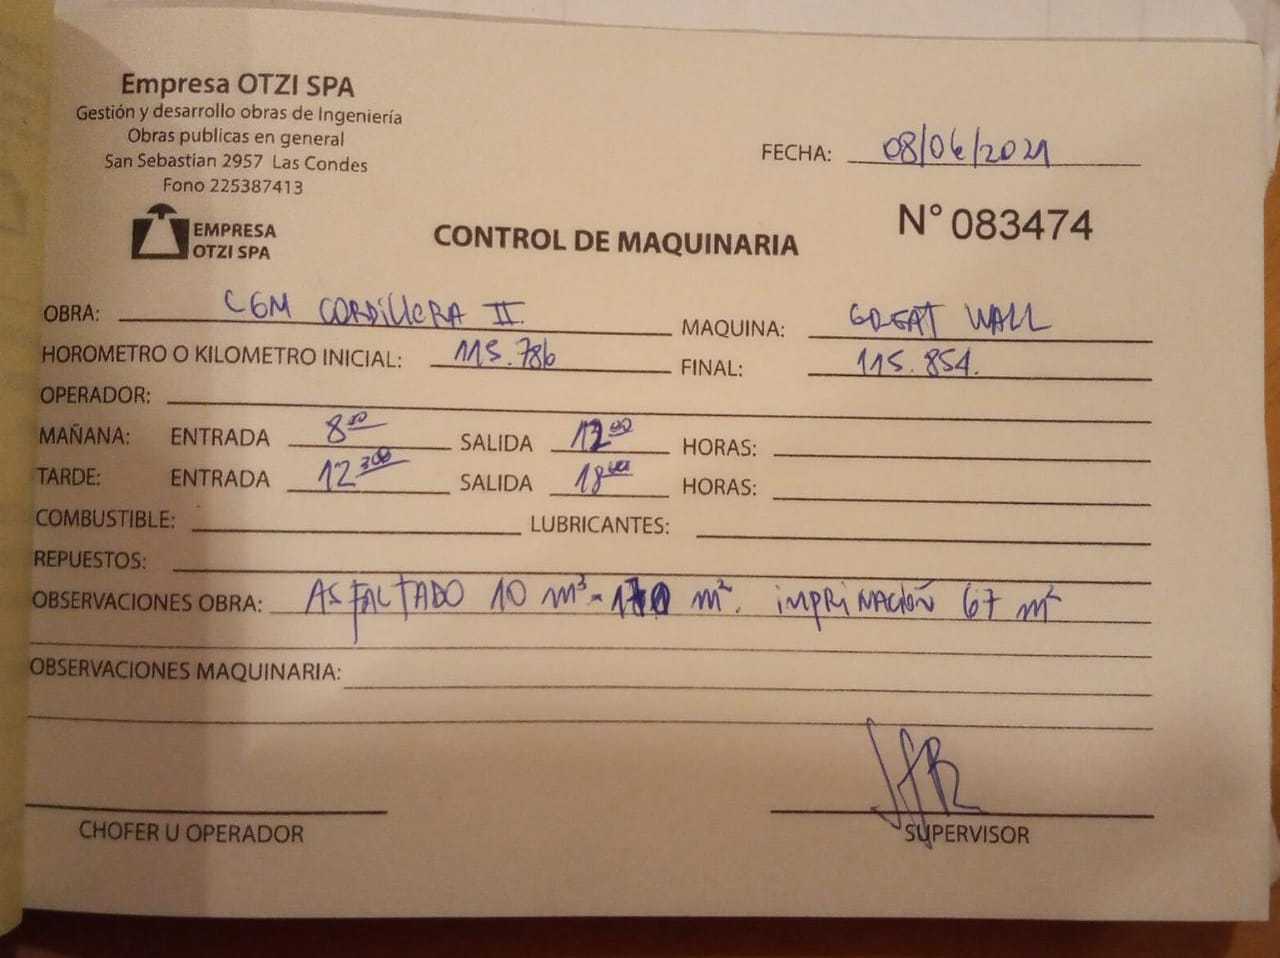 Empresa OTZI SPA
Gestión y desarrollo obras de Ingeniería
Obras publicas en general
San Sebastian 2957 Las Condes
Fono 225387413
EMPRESA
OTZI SPA
FECHA: 08/06/2021
CONTROL DE MAQUINARIA
N° 083474
OBRA: CGM CORDILLERA II MAQUINA: GREAT WALL
HOROMETRO O KILOMETRO INICIAL: 115.786 FINAL: 115.854.
OPERADOR:
MAÑANA: ENTRADA 8⁰⁰ SALIDA 12⁰⁰ HORAS:
TARDE: ENTRADA SALIDA 18⁰⁰ HORAS:
COMBUSTIBLE: LUBRICANTES:
REPUESTOS:
OBSERVACIONES OBRA: ASFALTADO 10 m³ - m². IMPRINACIÓN 67 m²
OBSERVACIONES MAQUINARIA:
CHOFER U OPERADOR SUPERVISOR